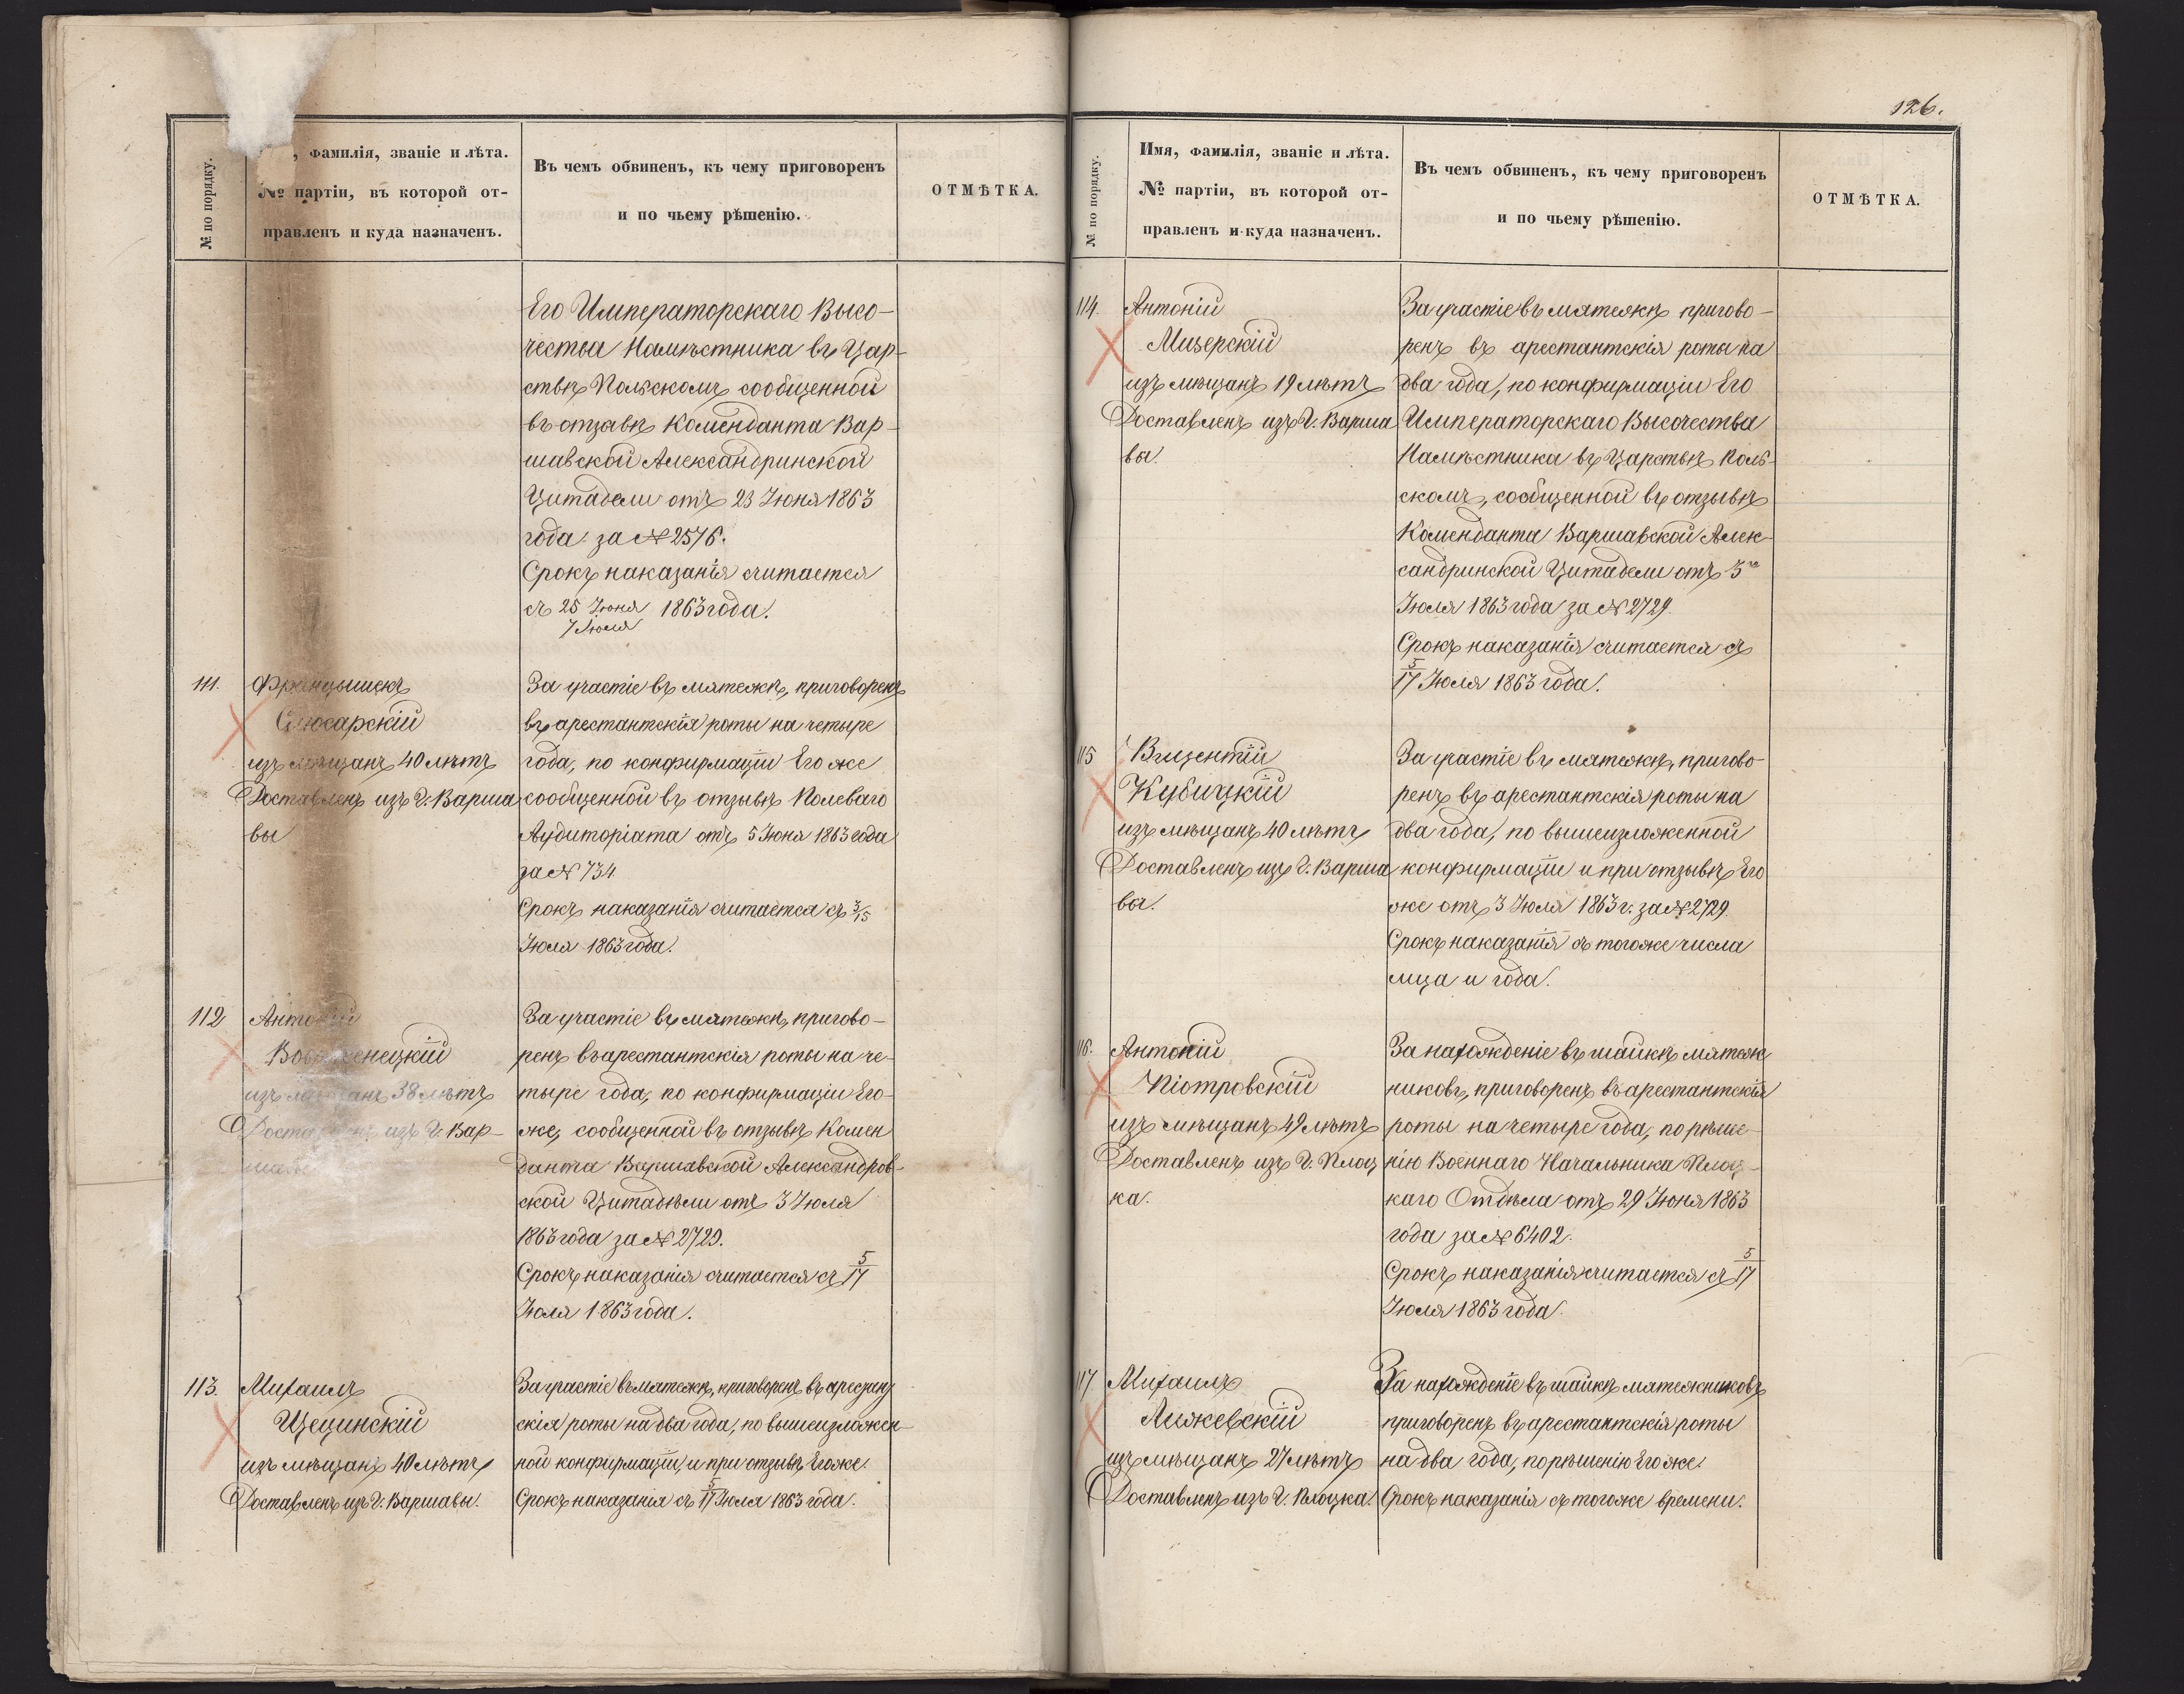 126.
№ по порядку.
, Фамилія, званіе и лѣта.
№ партіи, въ которой от-
правленъ и куда назначенъ.
Въ чемъ обвиненъ, къ чему приговоренъ
и по чьему рѣшенію.
ОТМѢТКА.
Его Императорскаго Высо-
чества Намѣстника въ Цар-
ствѣ Польскомъ сообщенной
въ отзывѣ Коменданта Вар-
шавской Александринской
Цитадели отъ 23 Іюня 1863
года за № 2576.
Срокъ наказанія считается
съ 25 Іюня/7 Іюля 1863 года.
111.
Францышекъ
Слюсарскій
изъ мѣщанъ 40 лѣтъ
Доставленъ изъ Г. Варша
вы
За участіе въ мятежѣ, приговоренъ
въ арестантскія роты на четыре
года, по конфирмаціи Его же
сообщенной въ отзывѣ Полеваго
Аудиторіата отъ 5 Іюня 1863 года
за № 734
Срокъ наказанія считается съ 3/15
Іюля 1863 года.
112
Антоній
изъ мѣщанъ 38 лѣтъ
Доставленъ изъ Г. Вар-
За участіе въ мятежѣ, пригово-
ренъ въ арестантскія роты на че-
тыре года, по конфирмаціи Его-
же, сообщенной въ отзывѣ Комен
данта Варшавской Александров-
ской Цитадѣли отъ 3 Іюля
1863 года за № 2729.
Срокъ наказанія считается съ 5/17
Іюля 1863 года.
113.
Михаилъ
Щецинскій
изъ мѣщанъ 40 лѣтъ
Доставленъ изъ Г. Варшавы.
За участіе въ мятежѣ, приговоренъ въ арестант
скія роты на два года, по вышеизложен-
ной конфирмаціи, и при отзывѣ Его же
Срокъ наказанія съ 5/17 Іюля 1863 года.
№ по порядку.
Имя, Фамилія, званіе и лѣта.
№ партіи, въ которой от-
правленъ и куда назначенъ.
Въ чемъ обвиненъ, къ чему приговоренъ
и по чьему рѣшенію.
ОТМѢТКА.
114.
Антоній
Мизерскій
изъ мѣщанъ 19 лѣтъ
Доставленъ изъ Г. Варша
вы.
За участіе въ мятежѣ пригово-
ренъ въ арестантскія роты на
два года, по конфирмаціи Его
Императорскаго Высочества
Намѣстника въ Царствѣ Поль-
скомъ, сообщенной въ отзывѣ
Коменданта Варшавской Алек-
сандринской Цитадели отъ 3го
Іюля 1863 года за № 2729.
Срокъ наказанія считается съ
5/17 Іюля 1863 года.
115
Вицентій
Кубицкій
изъ мѣщанъ 40 лѣтъ
Доставленъ изъ Г. Варша
вы.
За участіе въ мятежѣ, пригово-
ренъ въ арестантскія роты на
два года, по вышеизложенной
конфирмаціи и при отзывѣ Его
же отъ 3 Іюля 1863 г. за № 2729.
Срокъ наказанія съ того же числа
мца и года.
116.
Антоній
Піотровскій
изъ мѣщанъ 49 лѣтъ
Доставленъ изъ Г. Плоц
ка.
За нахожденіе въ шайкѣ мятеж
никовъ, приговоренъ въ арестантскія
роты на четыре года, по рѣше-
нію Военнаго Начальника Плоц-
каго Отдѣла отъ 29 Іюня 1863
года за № 6402.
Срокъ наказанія считается съ 5/17
Іюля 1863 года.
117
Михаилъ
изъ мѣщанъ 27 лѣтъ
Доставленъ изъ Г. Плоцка.
За нахожденіе въ шайкѣ мятежниковъ
приговоренъ въ арестантскія роты
на два года, по рѣшенію Его же.
Срокъ наказанія съ того же времени.